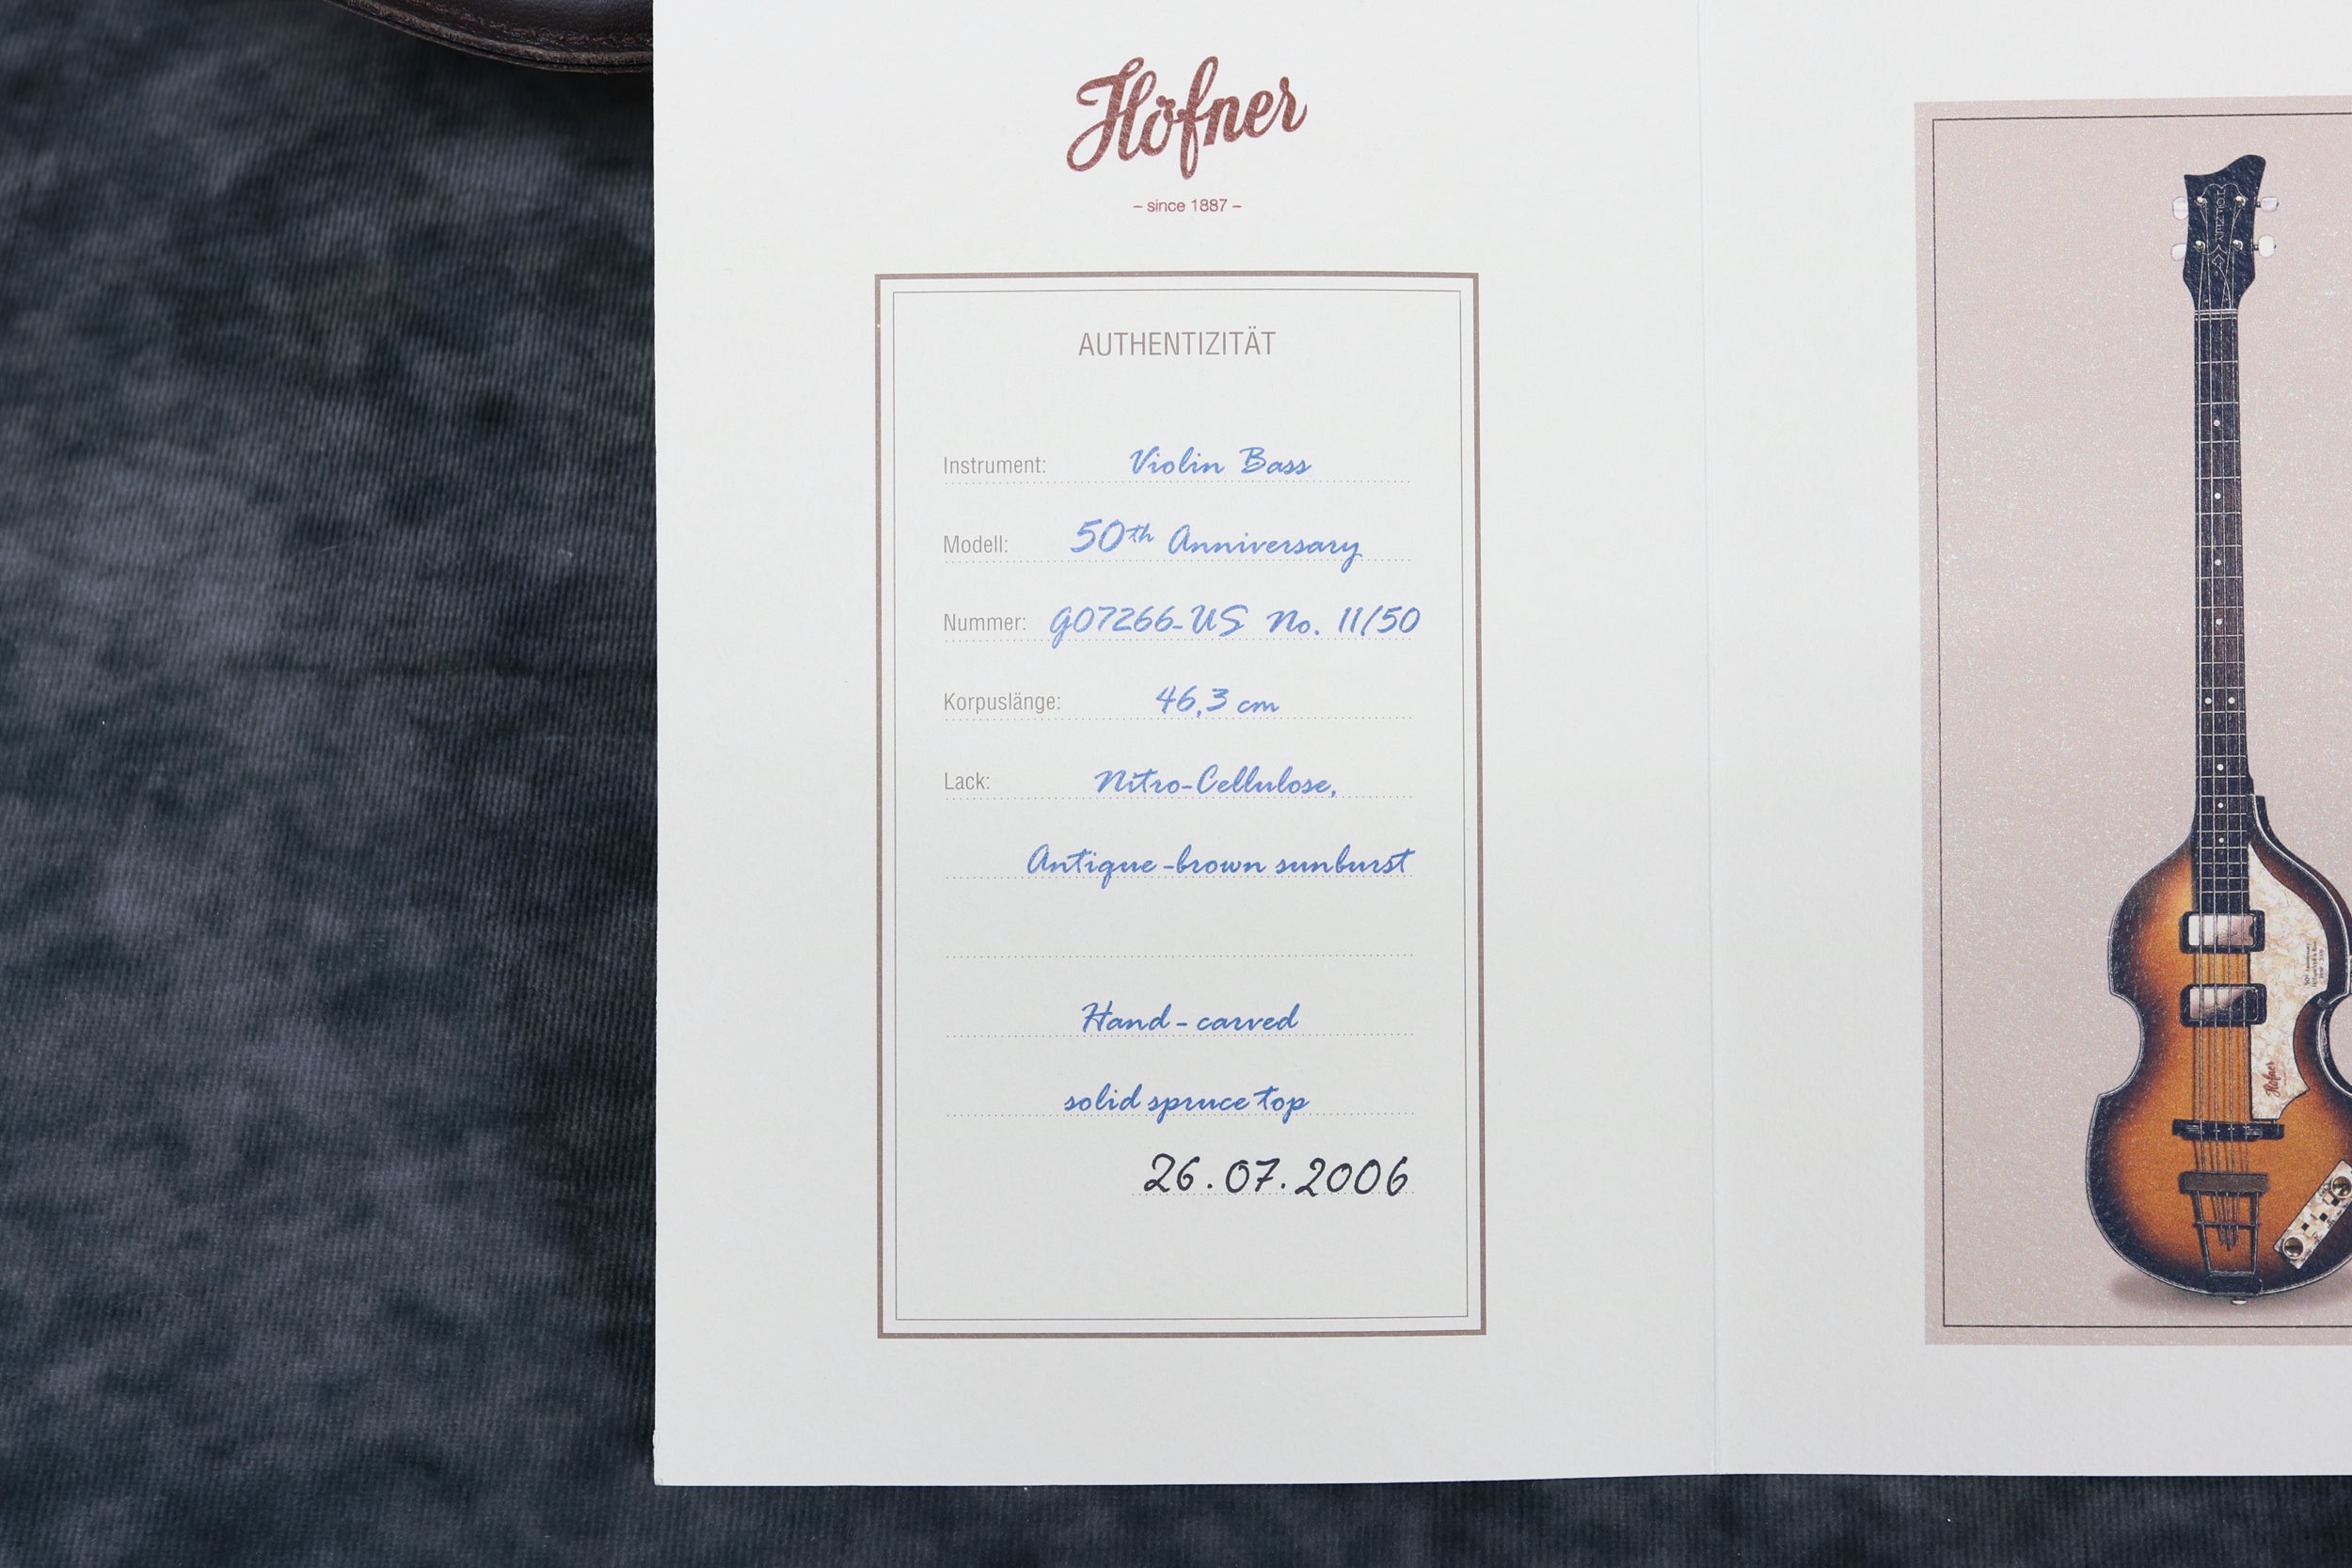 Höfner
– since 1887 –
AUTHENTIZITÄT
Instrument: Violin Bass
Modell: 50th Anniversary
Nummer: G07266-US No. 11/50
Korpuslänge: 46,3 cm
Lack: Nitro-Cellulose,
Antique-brown sunburst
Hand-carved
solid spruce top
26.07.2006
Höfner